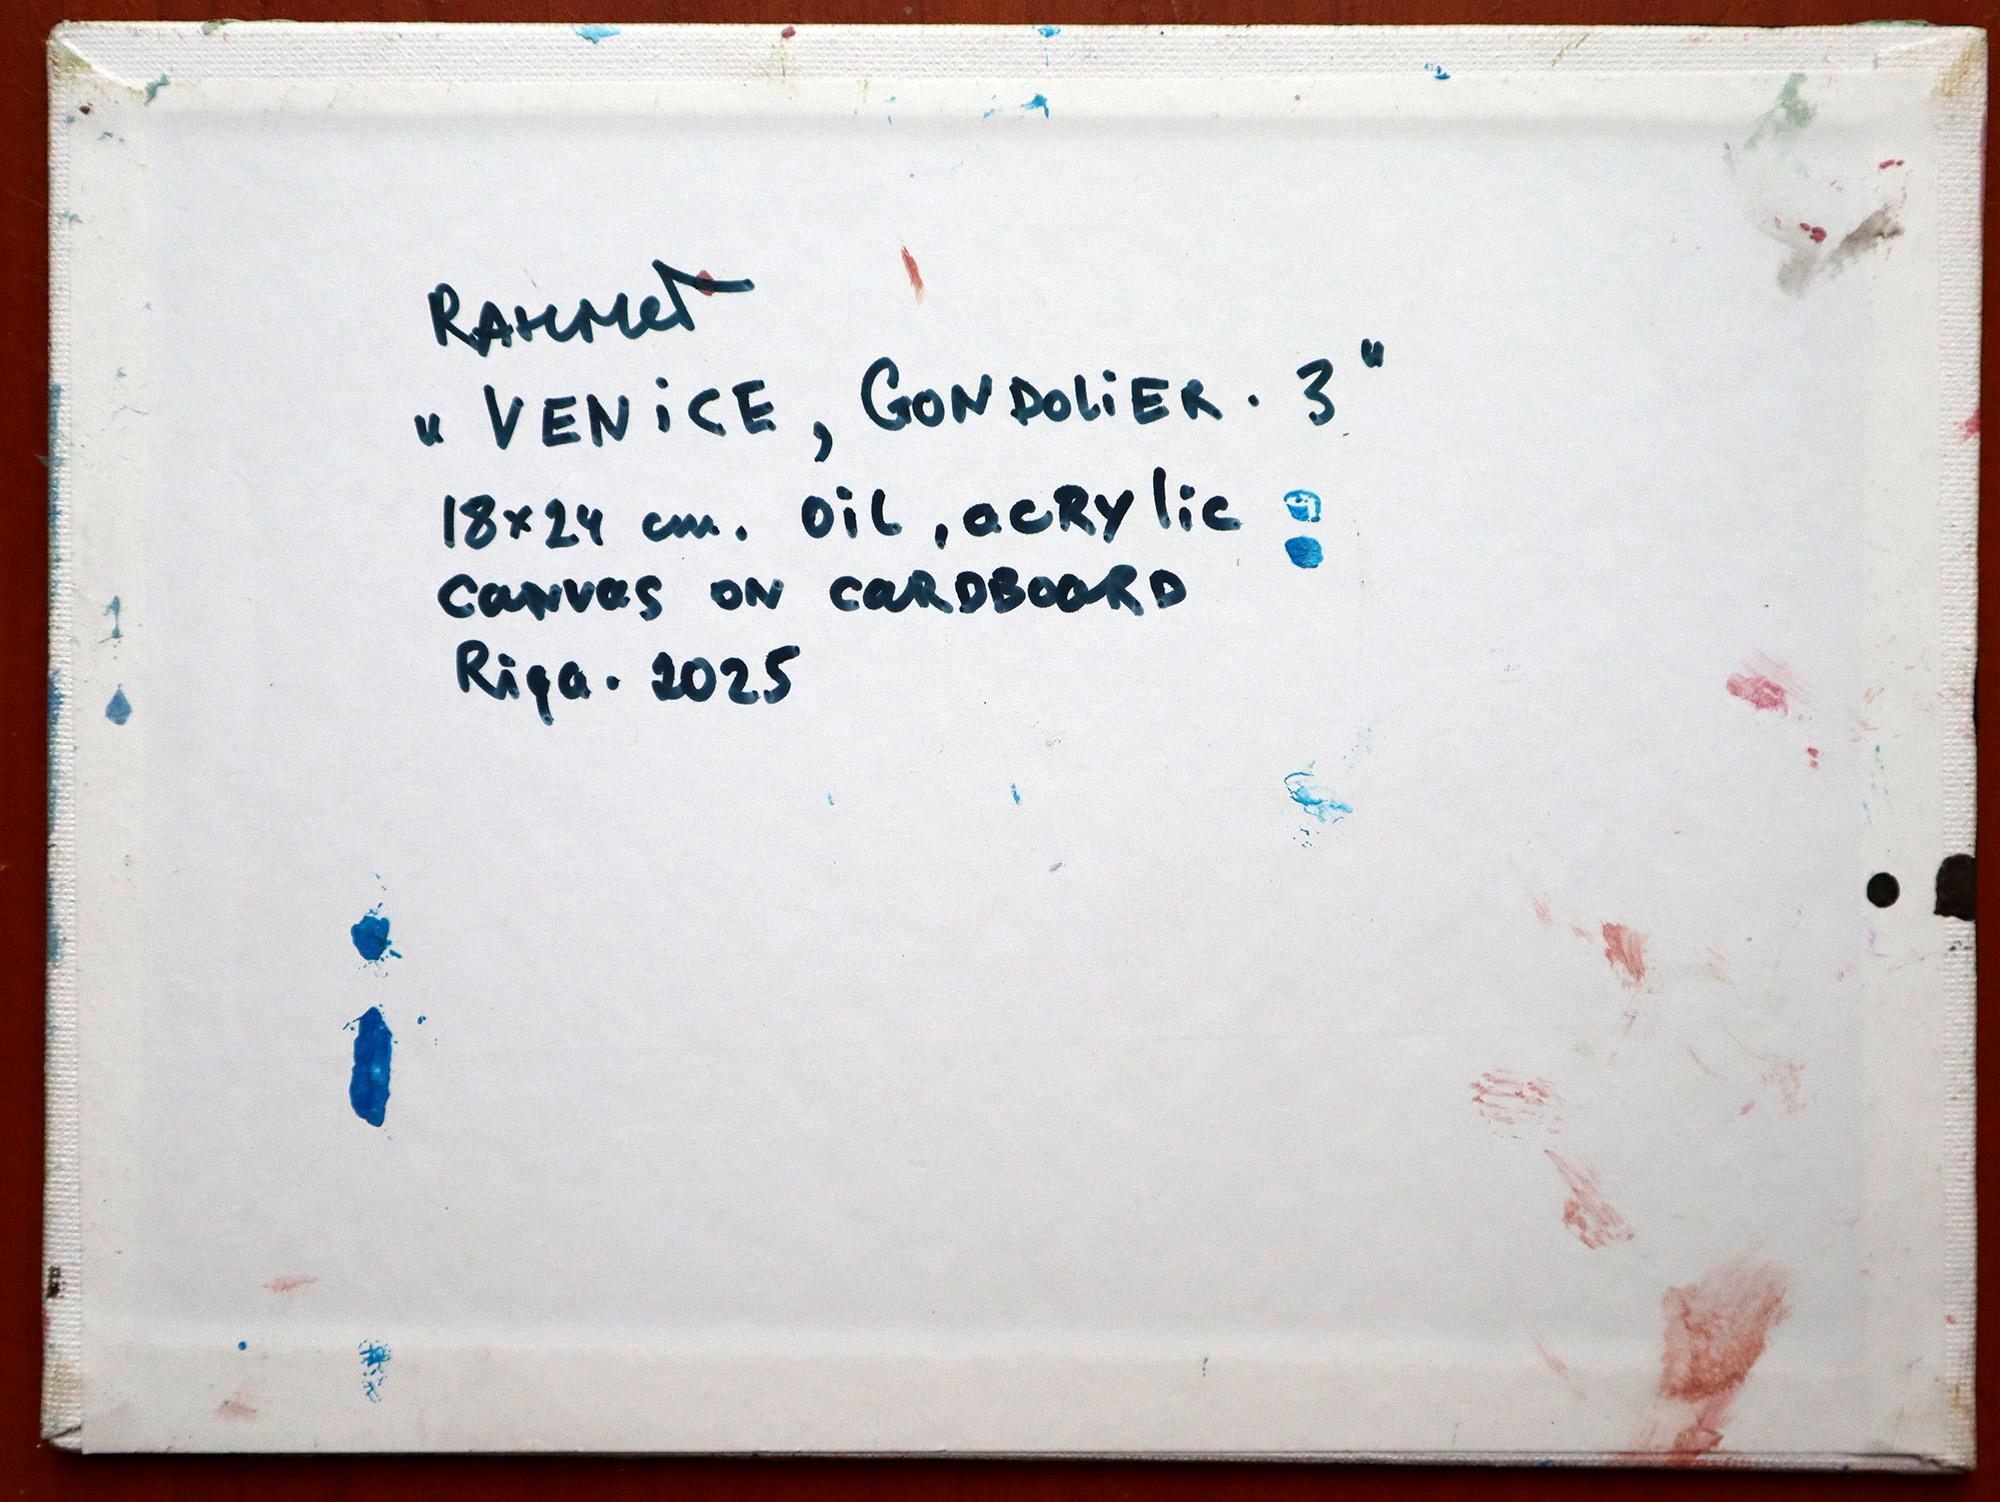 RAHMET
" VENiCE, GONDOLiER. 3 "
18x24 cm. OiL, acRylic
canvas on caRDBoaRD
Riga. 2025